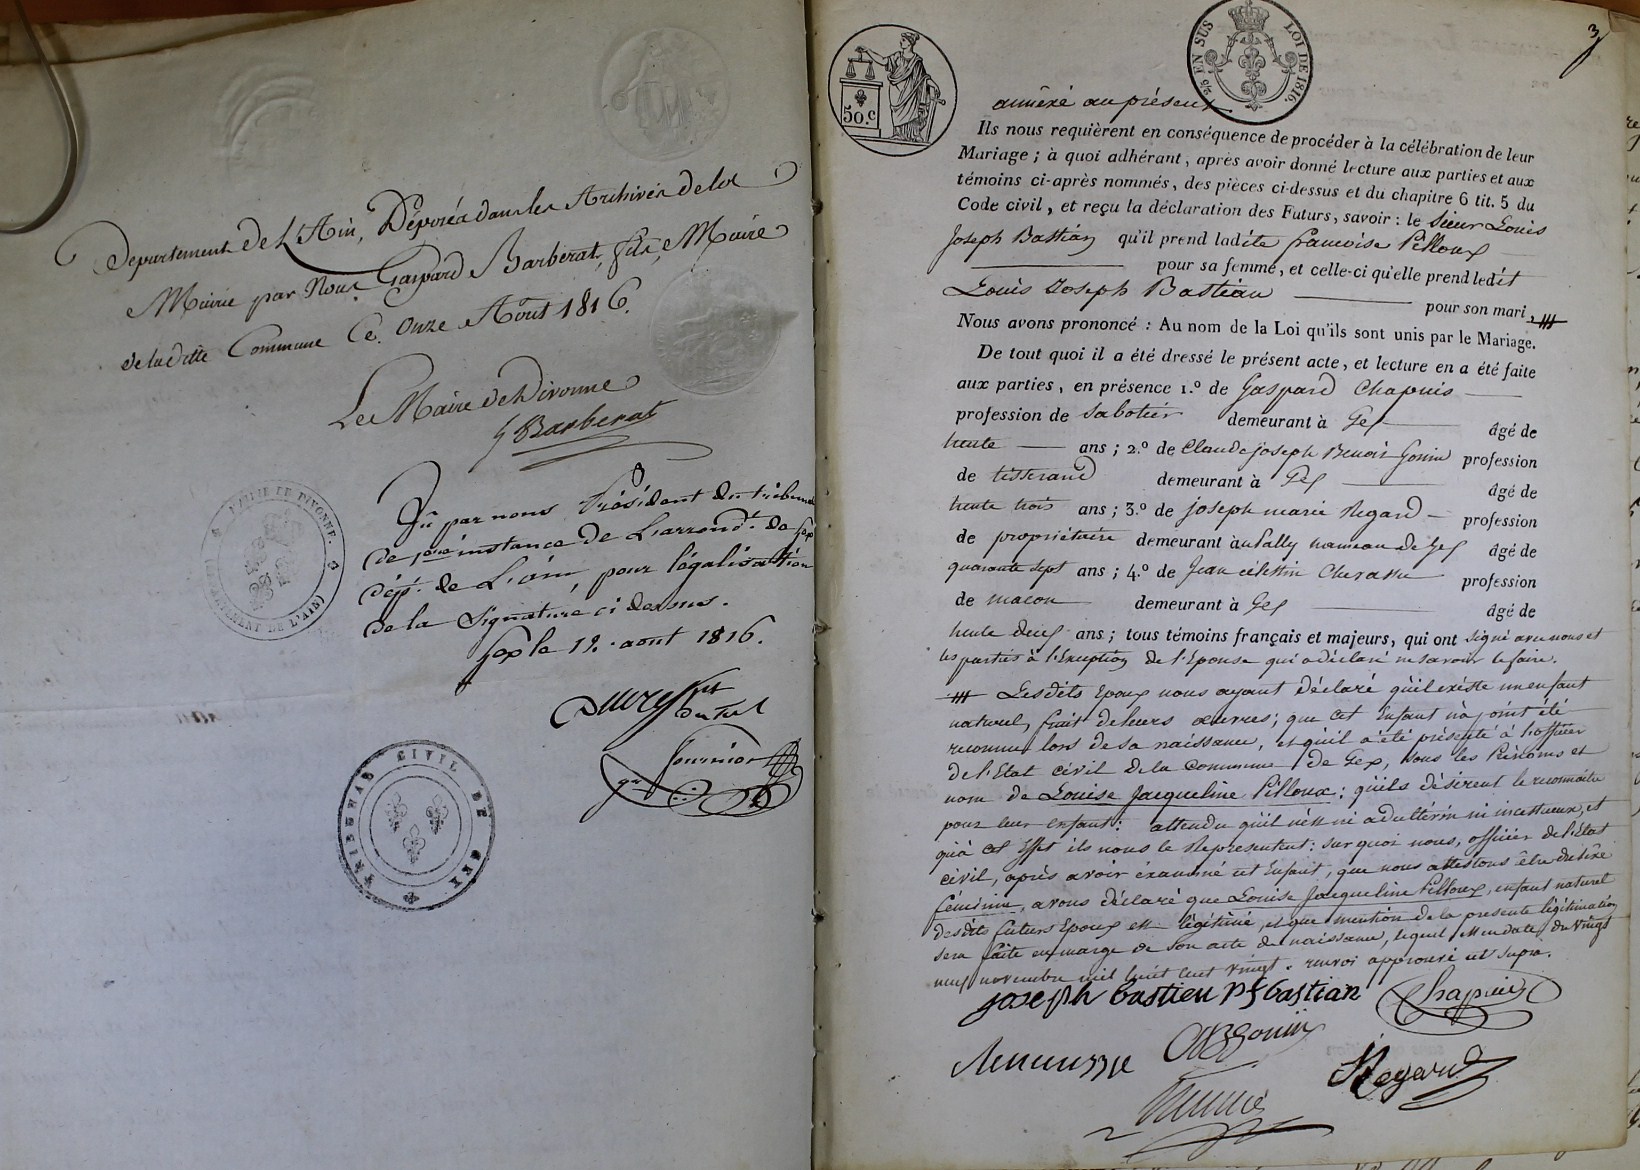 Departement de L'Ain, Déposéa dans les Archives de la
Mairie par Nous Gaspard Barberat, fils, Maire
de la ditte Commune Ce. Onze Août 1816.
Le Maire de Divonne
G Barberat
Vu par nous Président du tribunal
de 1ere instance de L'arrond.t de Gex
dép.t de L'ain, pour légalisation
de la Signature ci dessus.
Gex le 12. aout 1816.
MAIRIE DE DIVONNE.
(DEPARTEMENT DE L'AIN)
Fournier
TRIBUNAL CIVIL DE GEX
3
50.c
EN SUS LOI DE 1816.
annéxé au présent
Ils nous requièrent en conséquence de procéder à la célébration de leur
Mariage ; à quoi adhérant, après avoir donné lecture aux parties et aux
témoins ci-après nommés, des pièces ci-dessus et du chapitre 6 tit. 5 du
Code civil, et reçu la déclaration des Futurs, savoir : le Sieur Louis
Joseph Bastian qu'il prend ladite francoise Pilloux
pour sa femme, et celle-ci qu'elle prend ledit
Louis Joseph Bastian pour son mari,
Nous avons prononcé : Au nom de la Loi qu'ils sont unis par le Mariage.
De tout quoi il a été dressé le présent acte, et lecture en a été faite
aux parties, en présence 1.º de Gaspard Chapuis
profession de Sabotier demeurant à Gex âgé de
trente ans ; 2.º de Claude joseph Benoit Gonin profession
de tisserand demeurant à Gex âgé de
trente trois ans ; 3.º de joseph marie Regard profession
de propriétaire demeurant à hameau de Gex âgé de
quarante sept ans ; 4.º de Jean célestin profession
de macon demeurant à Gex âgé de
trente deux ans ; tous témoins français et majeurs, qui ont signé avec nous et
les parties à l'Exception de l'Epouse qui a déclaré ne savoir le faire.
Lesdits Epoux nous ayant déclaré qu'il existe un enfant
naturel, fruit de leurs œuvres ; que cet Enfant n'a point été
reconnu lors de sa naissance, et qu'il a été présenté à l'officier
de l'Etat civil de la Commune de Gex, sous les Prénoms et
nom de Louise Jacqueline Pilloux ; qu'ils désirent le reconnaitre
pour leur enfant : attendu qu'il n'est ni adultérin ni incestueux, et
qu'à cet effet ils nous le Représentent : sur quoi nous, officier de l'Etat
civil, après avoir éxaminé cet Enfant, que nous attestons être du sexe
féminin, avons déclaré que Louise Jacqueline Pilloux, enfant naturel
desdits futurs Epoux est légitimé, et que mention de la presente légitimation
sera faite en marge de son acte de naissance, lequel est en date du vingt
neuf novembre mil huit cent vingt. renvoi approuvé ut supra.
joseph bastien bastian Chapuis
Gonin
Regard